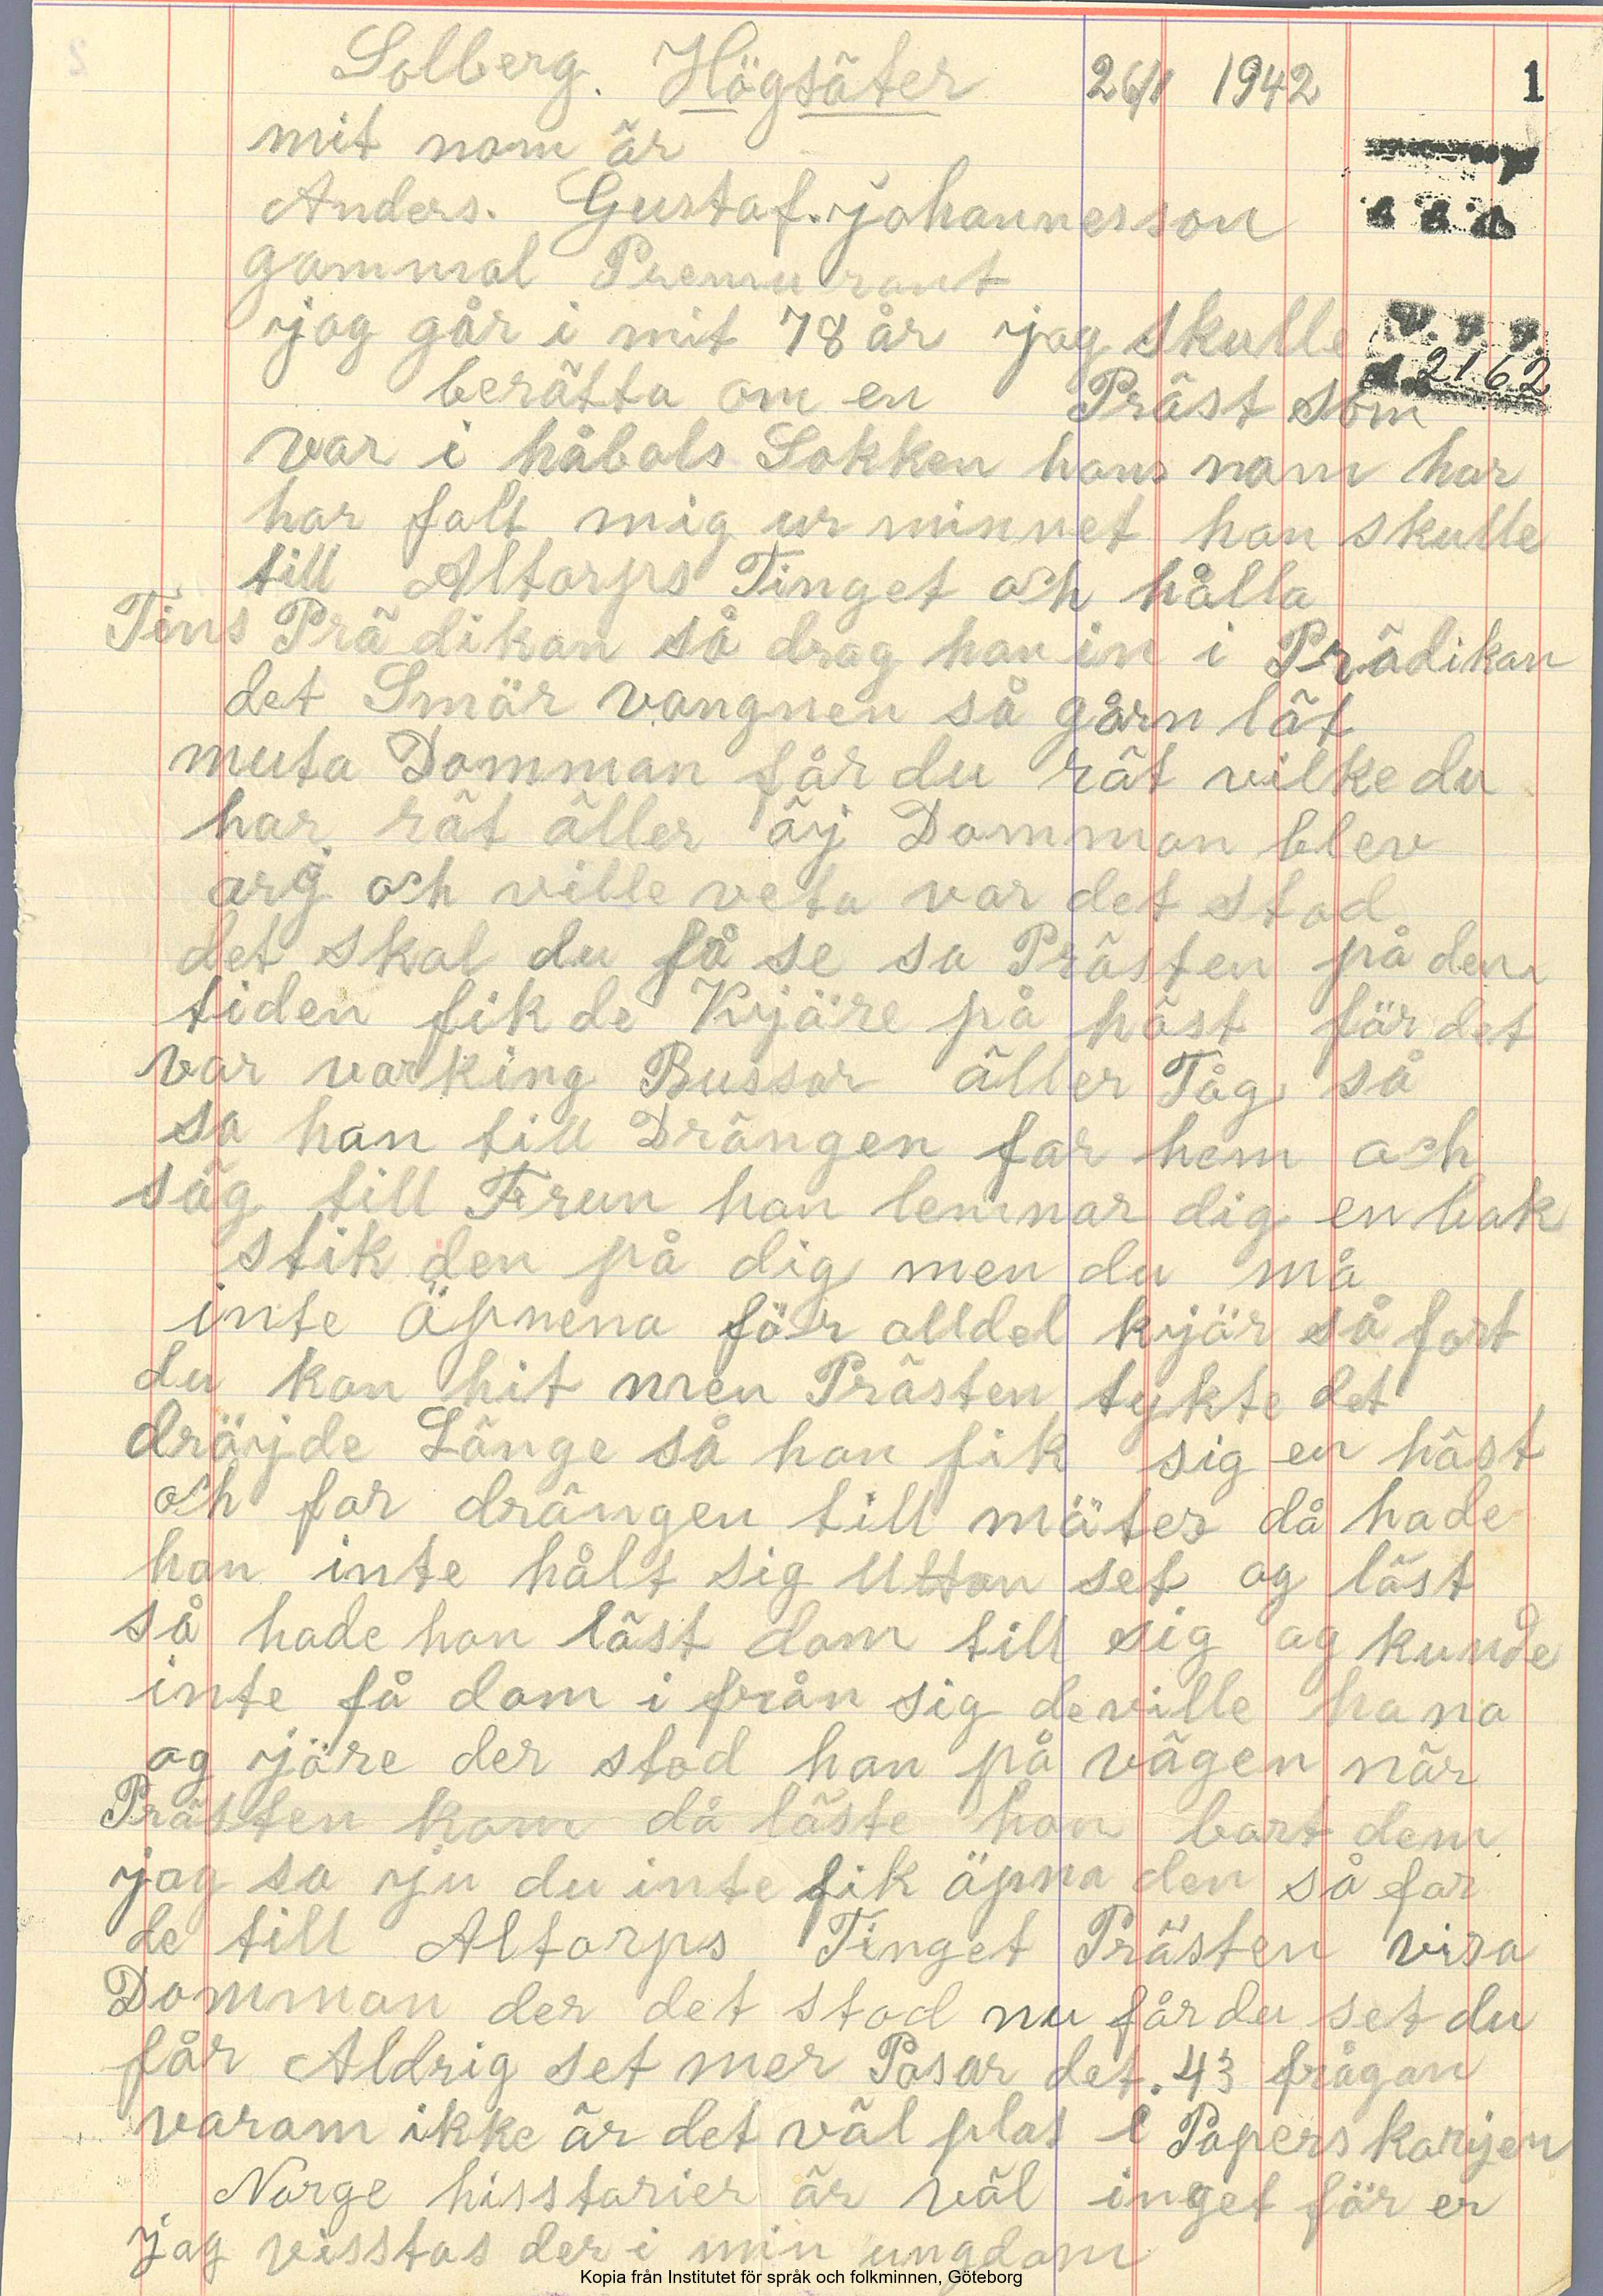 Solberg. Högsäter 26/1 1942 1
mit nam är
Anders. Gustaf. johannesson
gammal Premurant
jag går i mit 78 år jag skulle
V. F. F.
2162
berätta om en Präst som
var i håbols Sokken hans nam har
har falt mig ur minnet han skulle
till Altorps Tinget och hålla
Tins Prädikan så drag han in i Prädikan
det Smär vangnen så gårn låt
muta Domman får du rät vilke du
har rät äller äj Domman blev
arg och ville veta var det stod
det skal du få se sa Prästen på den
tiden fik de Kjäre på häst får det
var varking Bussar äller Tåg så
sa han till Drängen far hem och
säg till Frun han lemnar dig en bok
stik den på dig men du må
inte äpnena för alldel kjär så fort
du kan hit men Prästen tykte det
dräjde Länge så han fik sig en häst
och far drängen till mäter då hade
han inte hålt sig Uttan set og läst
så hade han läst dom till sig og kunde
inte få dom i från sig de ville hana
og jöre der stod han på vägen när
Prästen kom då läste han bort dem
jag sa ju du inte fik äpna den så far
de till Altorps Tinget Prästen visa
Domman der det stod nu får du set du
får Aldrig set mer Pasar det. 43 frågan
varam ikke är det väl plats i Papers karijen
Norge hisstarier är väl inget får er
jag visstas der i min ungdom
Kopia från Institutet för språk och folkminnen, Göteborg